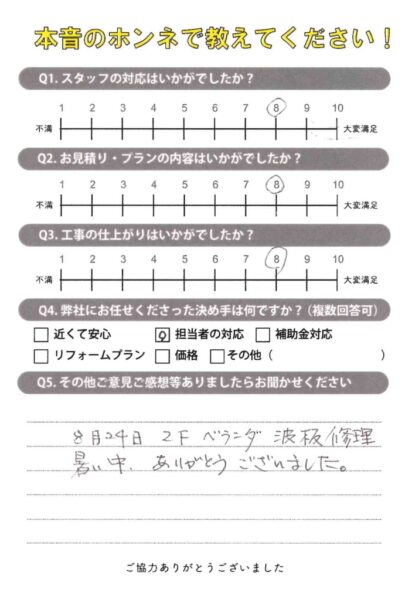 本音のホンネで教えてください！
Q1. スタッフの対応はいかがでしたか？
1 2 3 4 5 6 7 8 9 10
不満 大変満足
Q2. お見積り・プランの内容はいかがでしたか？
1 2 3 4 5 6 7 8 9 10
不満 大変満足
Q3. 工事の仕上がりはいかがでしたか？
1 2 3 4 5 6 7 8 9 10
不満 大変満足
Q4. 弊社にお任せくださった決め手は何ですか？（複数回答可）
近くて安心 担当者の対応 補助金対応
リフォームプラン 価格 その他（ ）
Q5. その他ご意見ご感想等ありましたらお聞かせください
8月24日 2F ベランダ 波板修理
暑い中、ありがとうございました。
ご協力ありがとうございました